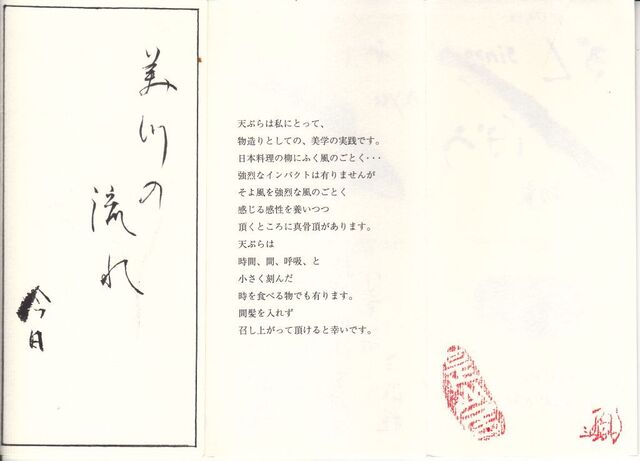 美川の
流れ
今日
天ぷらは私にとって、
物造りとしての、美学の実践です。
日本料理の柳にふく風のごとく･･･
強烈なインパクトは有りませんが
そよ風を強烈な風のごとく
感じる感性を養いつつ
頂くところに真骨頂があります。
天ぷらは
時間、間、呼吸、と
小さく刻んだ
時を食べる物でも有ります。
間髪を入れず
召し上がって頂けると幸いです。